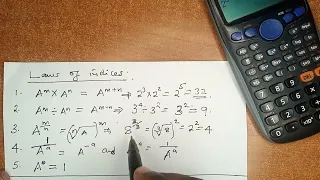 Laws of indices.
1. Aᵐ × Aⁿ = Aᵐ⁺ⁿ ⇒ 2³ × 2² = 2⁵ = 32
2. Aᵐ ÷ Aⁿ = Aᵐ⁻ⁿ ⇒ 3⁴ ÷ 3² = 3² = 9
3. A^(m/n) = (ⁿ√A)ᵐ ⇒ 8^(2/3) = (³√8)² = 2² = 4
4. 1/Aⁿ = A⁻ⁿ and = 1/Aⁿ
5. A⁰ = 1